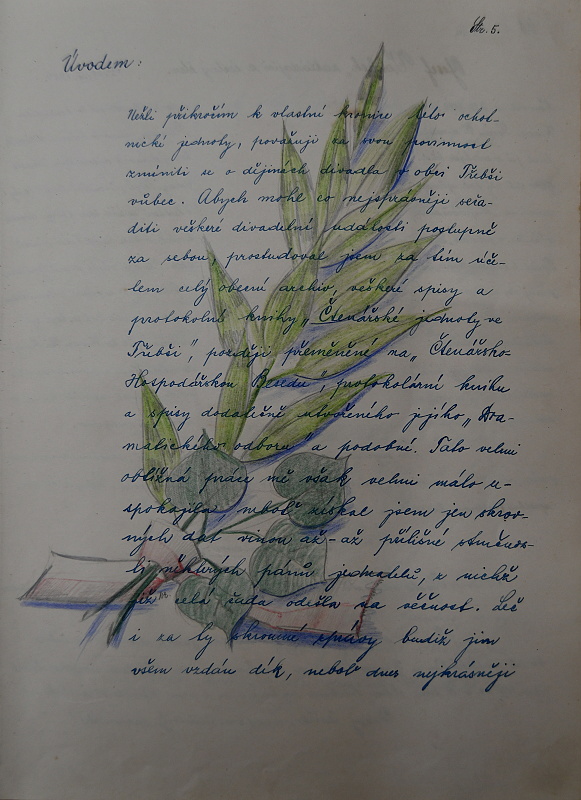 Str. 5.
Úvodem:
Nežli přikročím k vlastní kronice této ochot-
nické jednoty, považuji za svou povinnost
zmíniti se o dějinách divadla v obci Třebši
vůbec. Abych mohl co nejsprávněji seřa-
diti veškeré divadelní události postupně
za sebou, prostudoval jsem za tím úče-
lem celý obecní archiv, veškeré spisy a
protokolní knihy „Čtenářské jednoty ve
Třebši", později přeměněné na „Čtenářsko-
Hospodářskou Besedu", protokolární knihu
a spisy dodatečně utvořeného jejího „Dra-
matického odboru" a podobně. Tato velmi
obtížná práce mě však velmi málo u-
spokojila neboť získal jsem jen skrov-
ných dat vinou až-až přílišné stručnos-
ti některých pánů jednatelů, z nichž
již celá řada odešla na věčnost. Leč
i za ty skromné zprávy budiž jim
všem vzdán dík, neboť dnes nejkrásněji